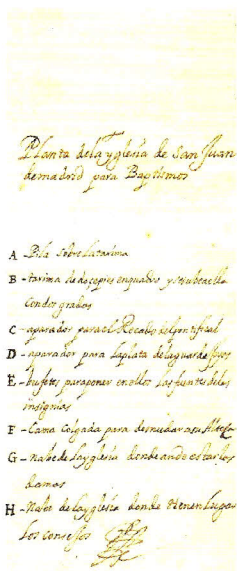 Planta dela yglesia de San Juan
demadrid para Baptismos
A - Pila sobre latarima
B - tarima de docepies enquadro y sesubeaella
condos gradas
C - aparador para el Recado del pontifical
D - aparador para laplata delaguardajoyas
E - bufetes paraponer en ellos las fuentes delas
insignias
F - Cama Colgada para desnudar a su Alteza
G - nabe de la yglesia donde an de estar las
damas
H - Nabe de la yglesia donde tienen Lugar
Los consejos